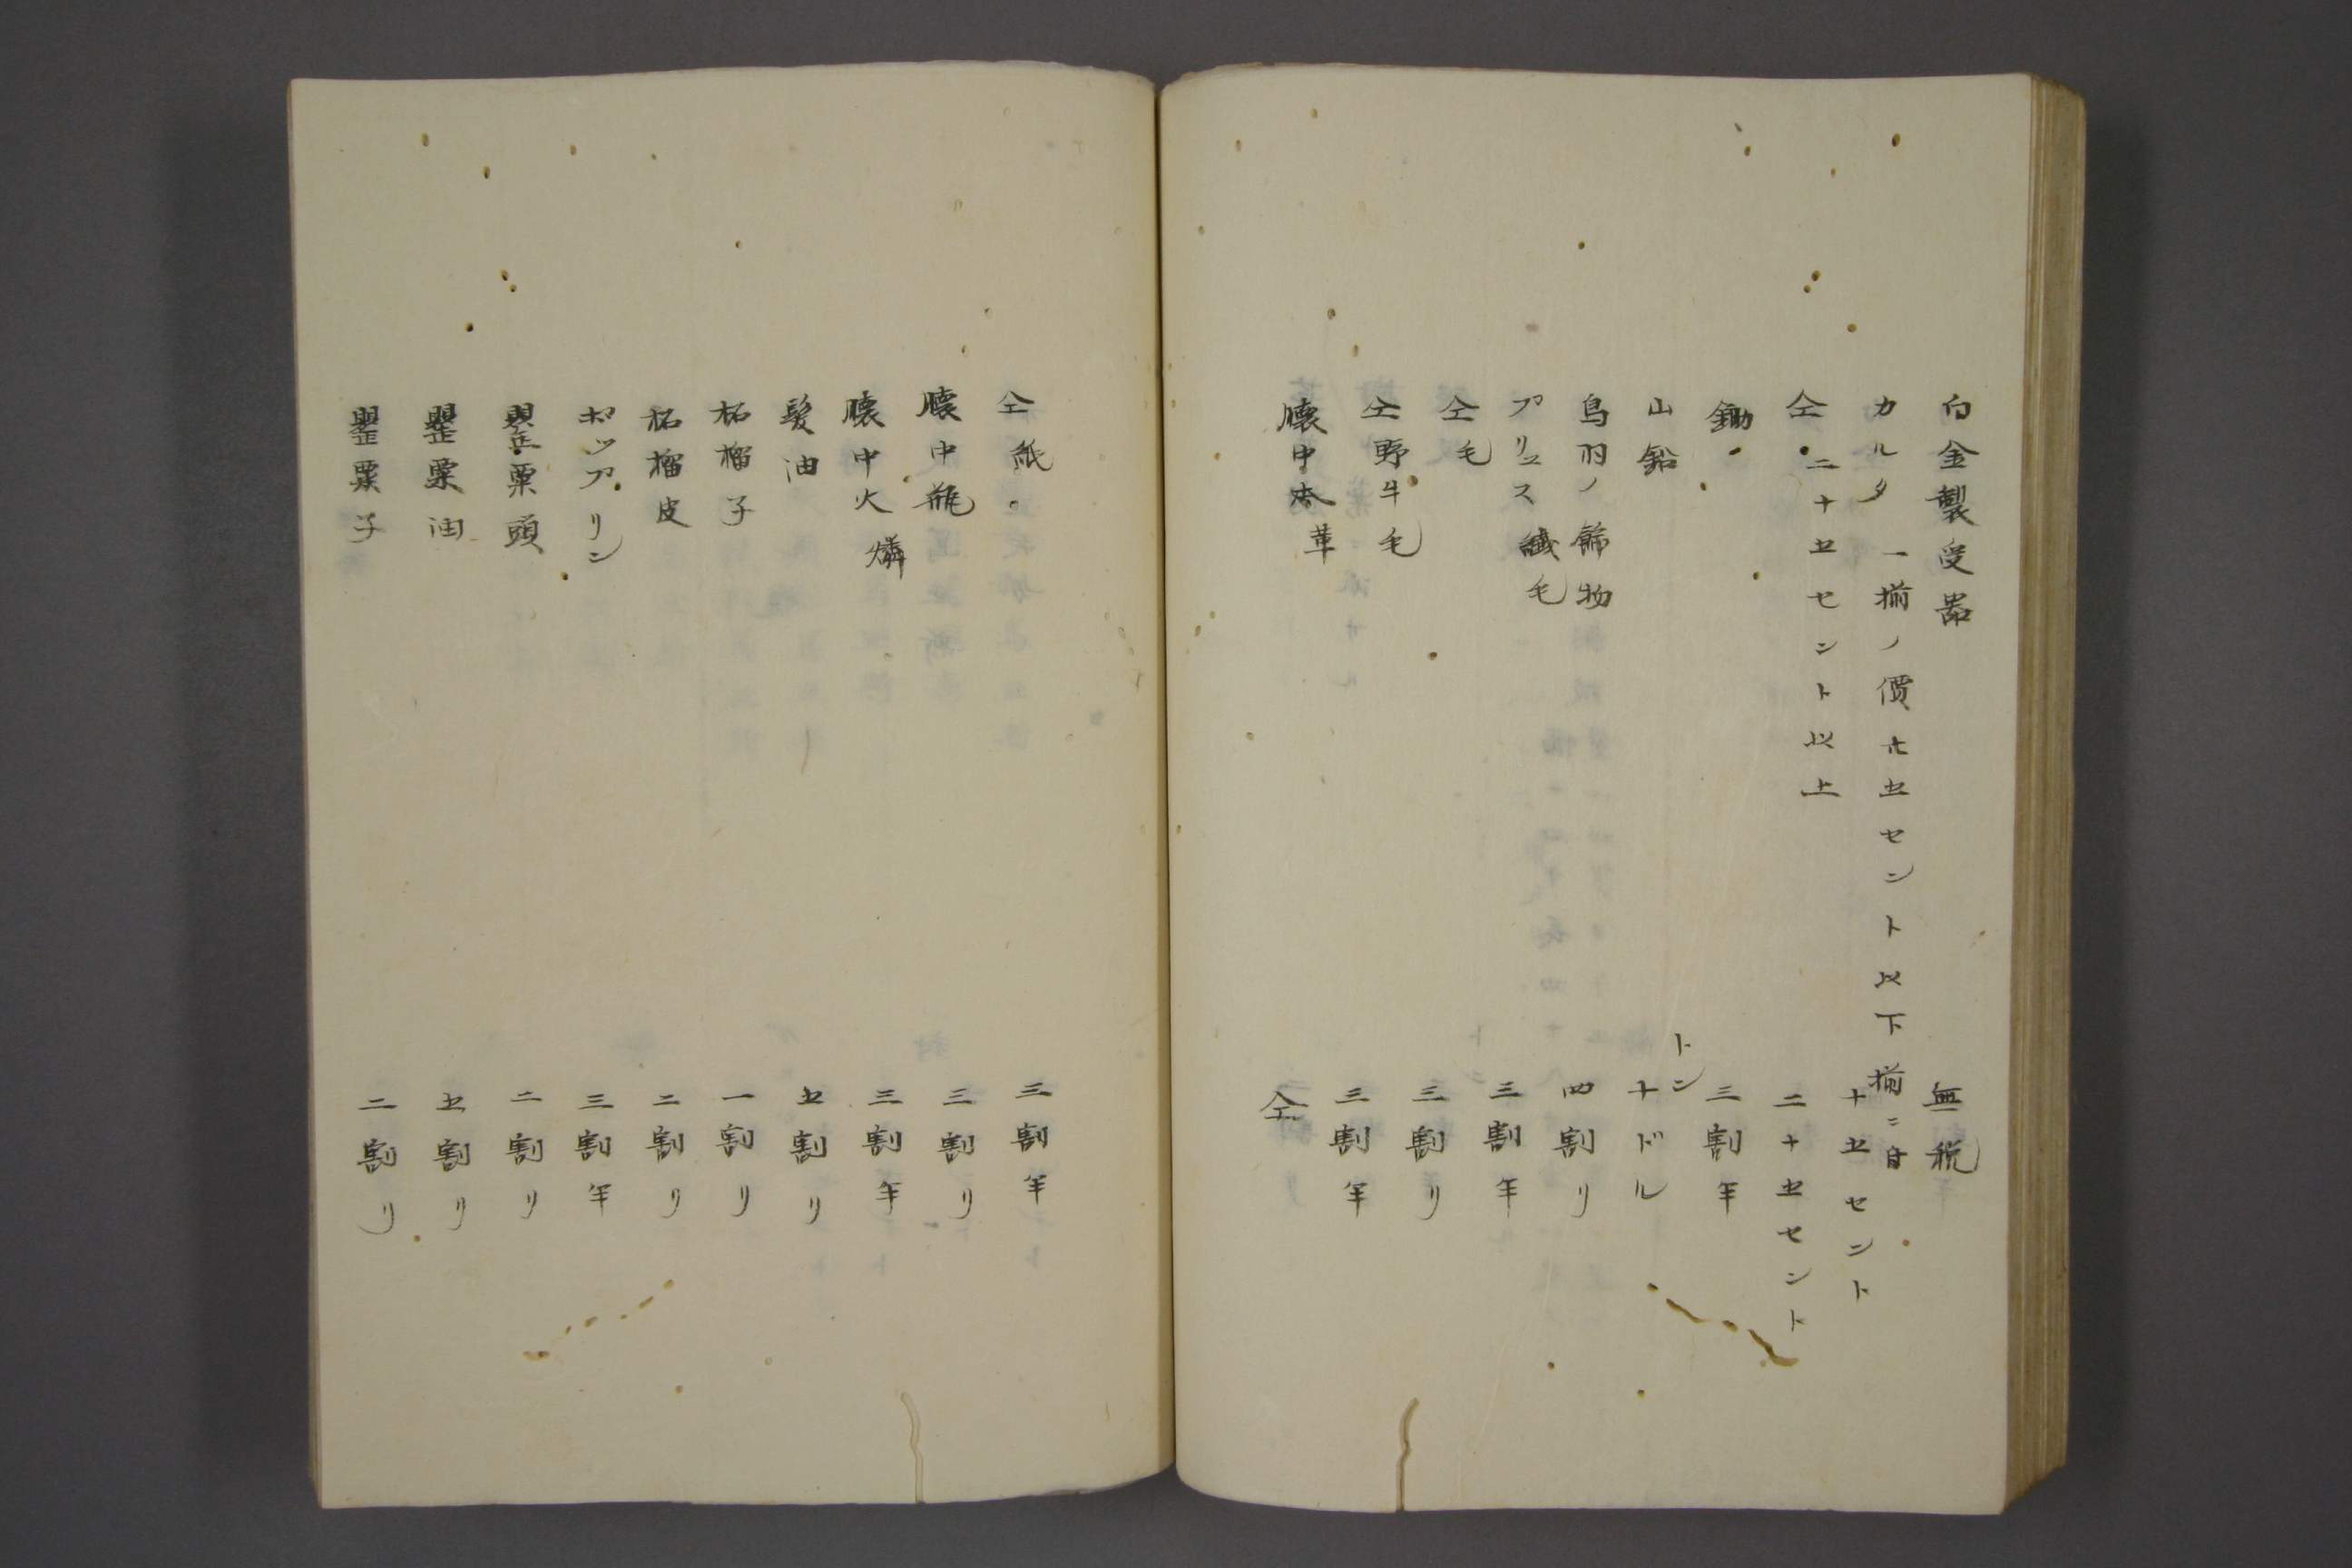 白金製受器　無税
カルタ　一揃ノ價廿五セント以下　揃ニ付
十五セント
仝　二十五セント以上　二十五セント
鋤　三割半
山鉛　トン
十ドル
鳥羽ノ飾物　四割リ
プリユス織毛　三割半
仝毛　三割リ
仝野牛毛　三割半
懐中本　革　仝
仝紙　三割半
懐中瓶　三割リ
懐中火燐　三割半
髪油　五割リ
柘榴子　一割リ
柘榴皮　二割リ
ポップリン　三割半
罌粟頭　二割リ
罌粟油　五割リ
罌粟子　二割リ